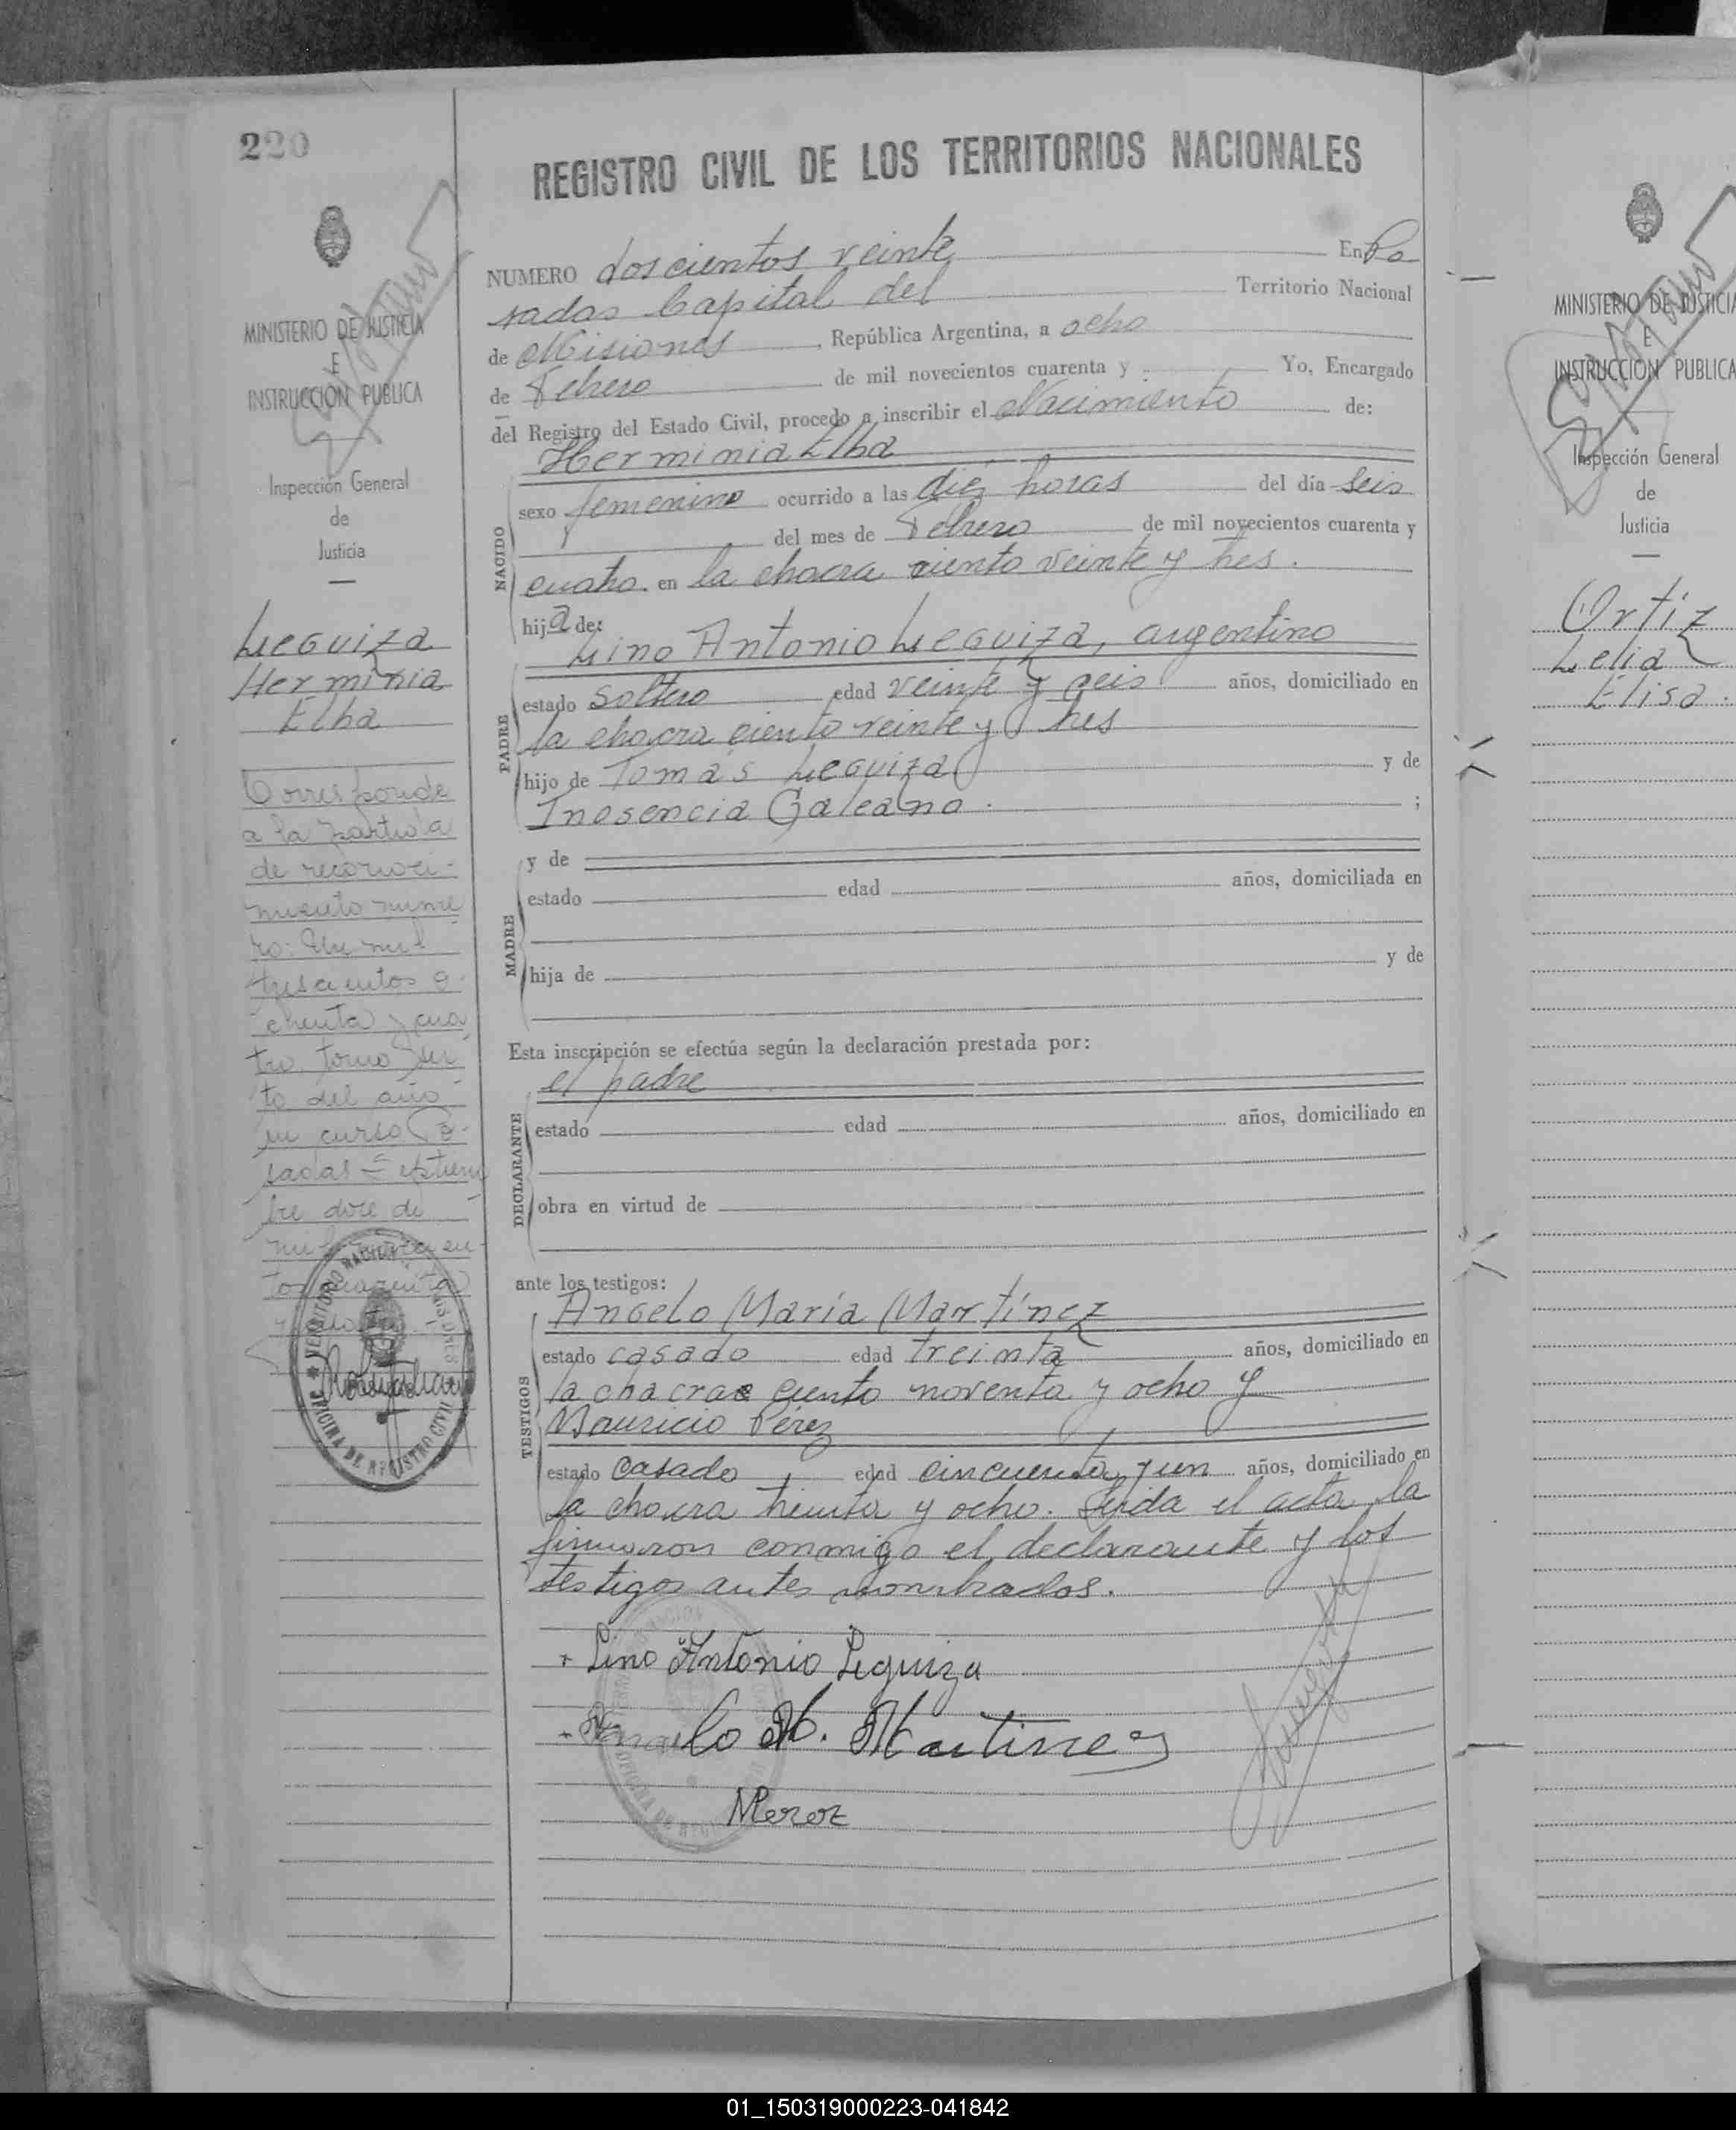 220
MINISTERIO DE JUSTICIA
E
INSTRUCCION PUBLICA
Inspección General
de
Justicia
Leguiza
Herminia
Elba
Corresponde
a la partida
de reconoci-
miento nume
ro: Un mil
trescientos o-
chenta y cua
tro. tomo
to del año
en curso Po-
sadas =
bre doce de
REGISTRO CIVIL DE LOS TERRITORIOS NACIONALES
NUMERO doscientos veinte En Po
sadas Capital del Territorio Nacional
de Misiones, República Argentina, a ocho
de Febrero de mil novecientos cuarenta y Yo, Encargado
del Registro del Estado Civil, procedo a inscribir el Nacimiento de:
Herminia Elba
NACIDO
sexo femenino ocurrido a las diez horas del día seis
del mes de Febrero de mil novecientos cuarenta y
cuatro. en la chacra ciento veinte y tres.
hija de:
Lino Antonio Leguiza, argentino
PADRE
estado soltero edad veinte y seis años, domiciliado en
la chacra ciento veinte y tres
hijo de Tomás Leguiza y de
Inosencia Galeano. ;
y de
MADRE
estado edad años, domiciliada en
hija de y de
Esta inscripción se efectúa según la declaración prestada por:
el padre
DECLARANTE
estado edad años, domiciliado en
obra en virtud de
ante los testigos:
Angelo María Martínez
TESTIGOS
estado casado edad treinta años, domiciliado en
la chacra ciento noventa y ocho y
Mauricio Pérez
estado casado edad cincuenta y un años, domiciliado en
la chacra treinta y ocho. Leída el acta, la
firmaron conmigo el declarante y los
testigos antes nombrados.
Lino Antonio Leguiza
M. Martinez
MPerez
MINISTERIO DE JUSTICIA
E
INSTRUCCION PUBLICA
Inspección General
de
Justicia
Ortiz
Lelia
Elisa.
01_150319000223-041842